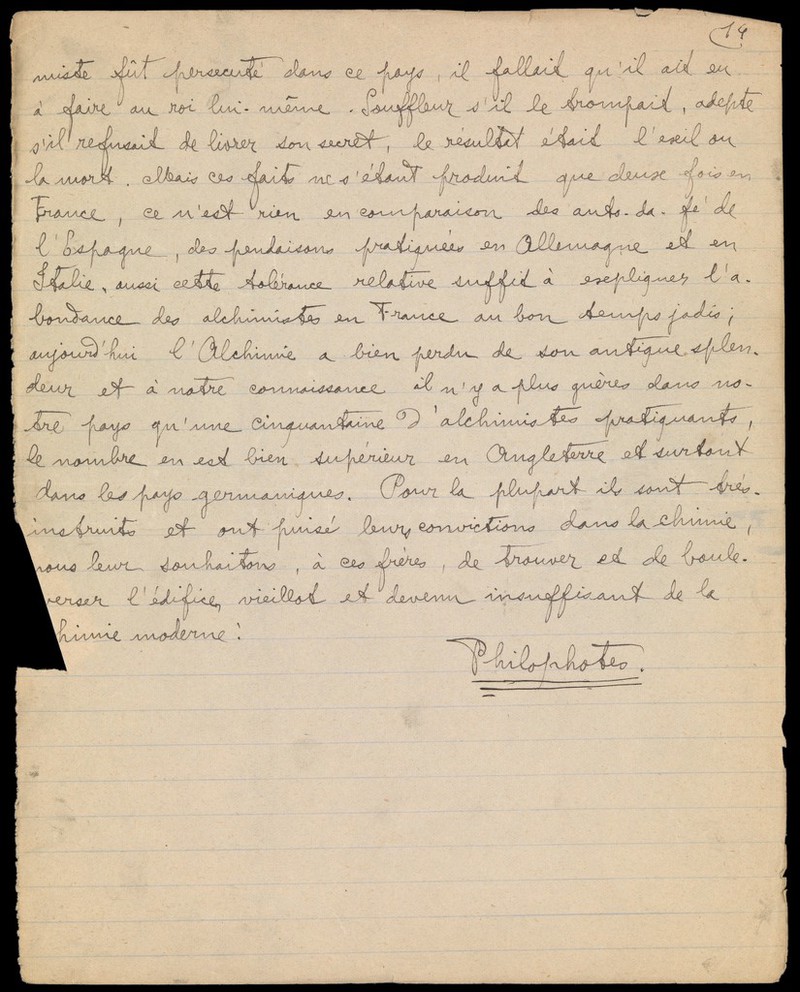 14
miste fût persecuté dans ce pays, il fallait qu'il ait eu
à faire au roi lui-même. Souffleur s'il le trompait, adepte
s'il refusait de livrer son secret, le résultat était l'exil ou
la mort. Mais ces faits ne s'étant produit que deux fois en
France, ce n'est rien en comparaison des auto-da-fé de
l'Espagne, des pendaisons pratiquées en Allemagne et en
Italie, aussi cette tolérance relative suffit à expliquer l'a-
bondance des alchimistes en France au bon temps jadis;
aujourd'hui l'Alchimie a bien perdu de son antique splen-
deur et à notre connaissance il n'y a plus guères dans no-
tre pays qu'une cinquantaine d'alchimistes pratiquants,
le nombre en est bien supérieur en Angleterre et surtout
dans les pays germaniques. Pour la plupart ils sont très-
instruits et ont puisé leurs convictions dans la chimie,
nous leur souhaitons, à ces frères, de trouver et de boule-
verser l'édifice, vieillot et devenu insuffisant de la
himie moderne!
Philophotes.